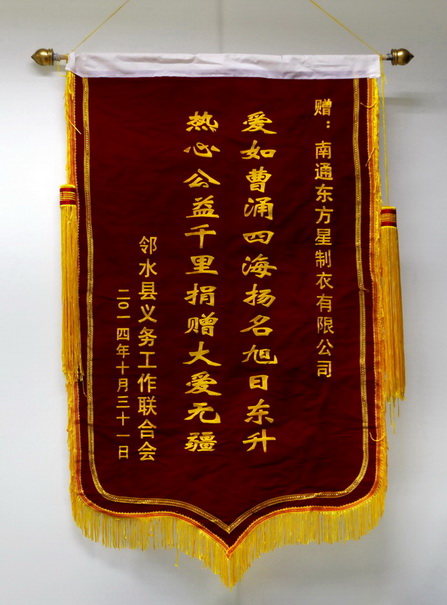 赠：南通东方星制衣有限公司
爱如曹涌四海扬名旭日东升
热心公益千里捐赠大爱无疆
邻水县义务工作联合会
二〇一四年十月三十一日